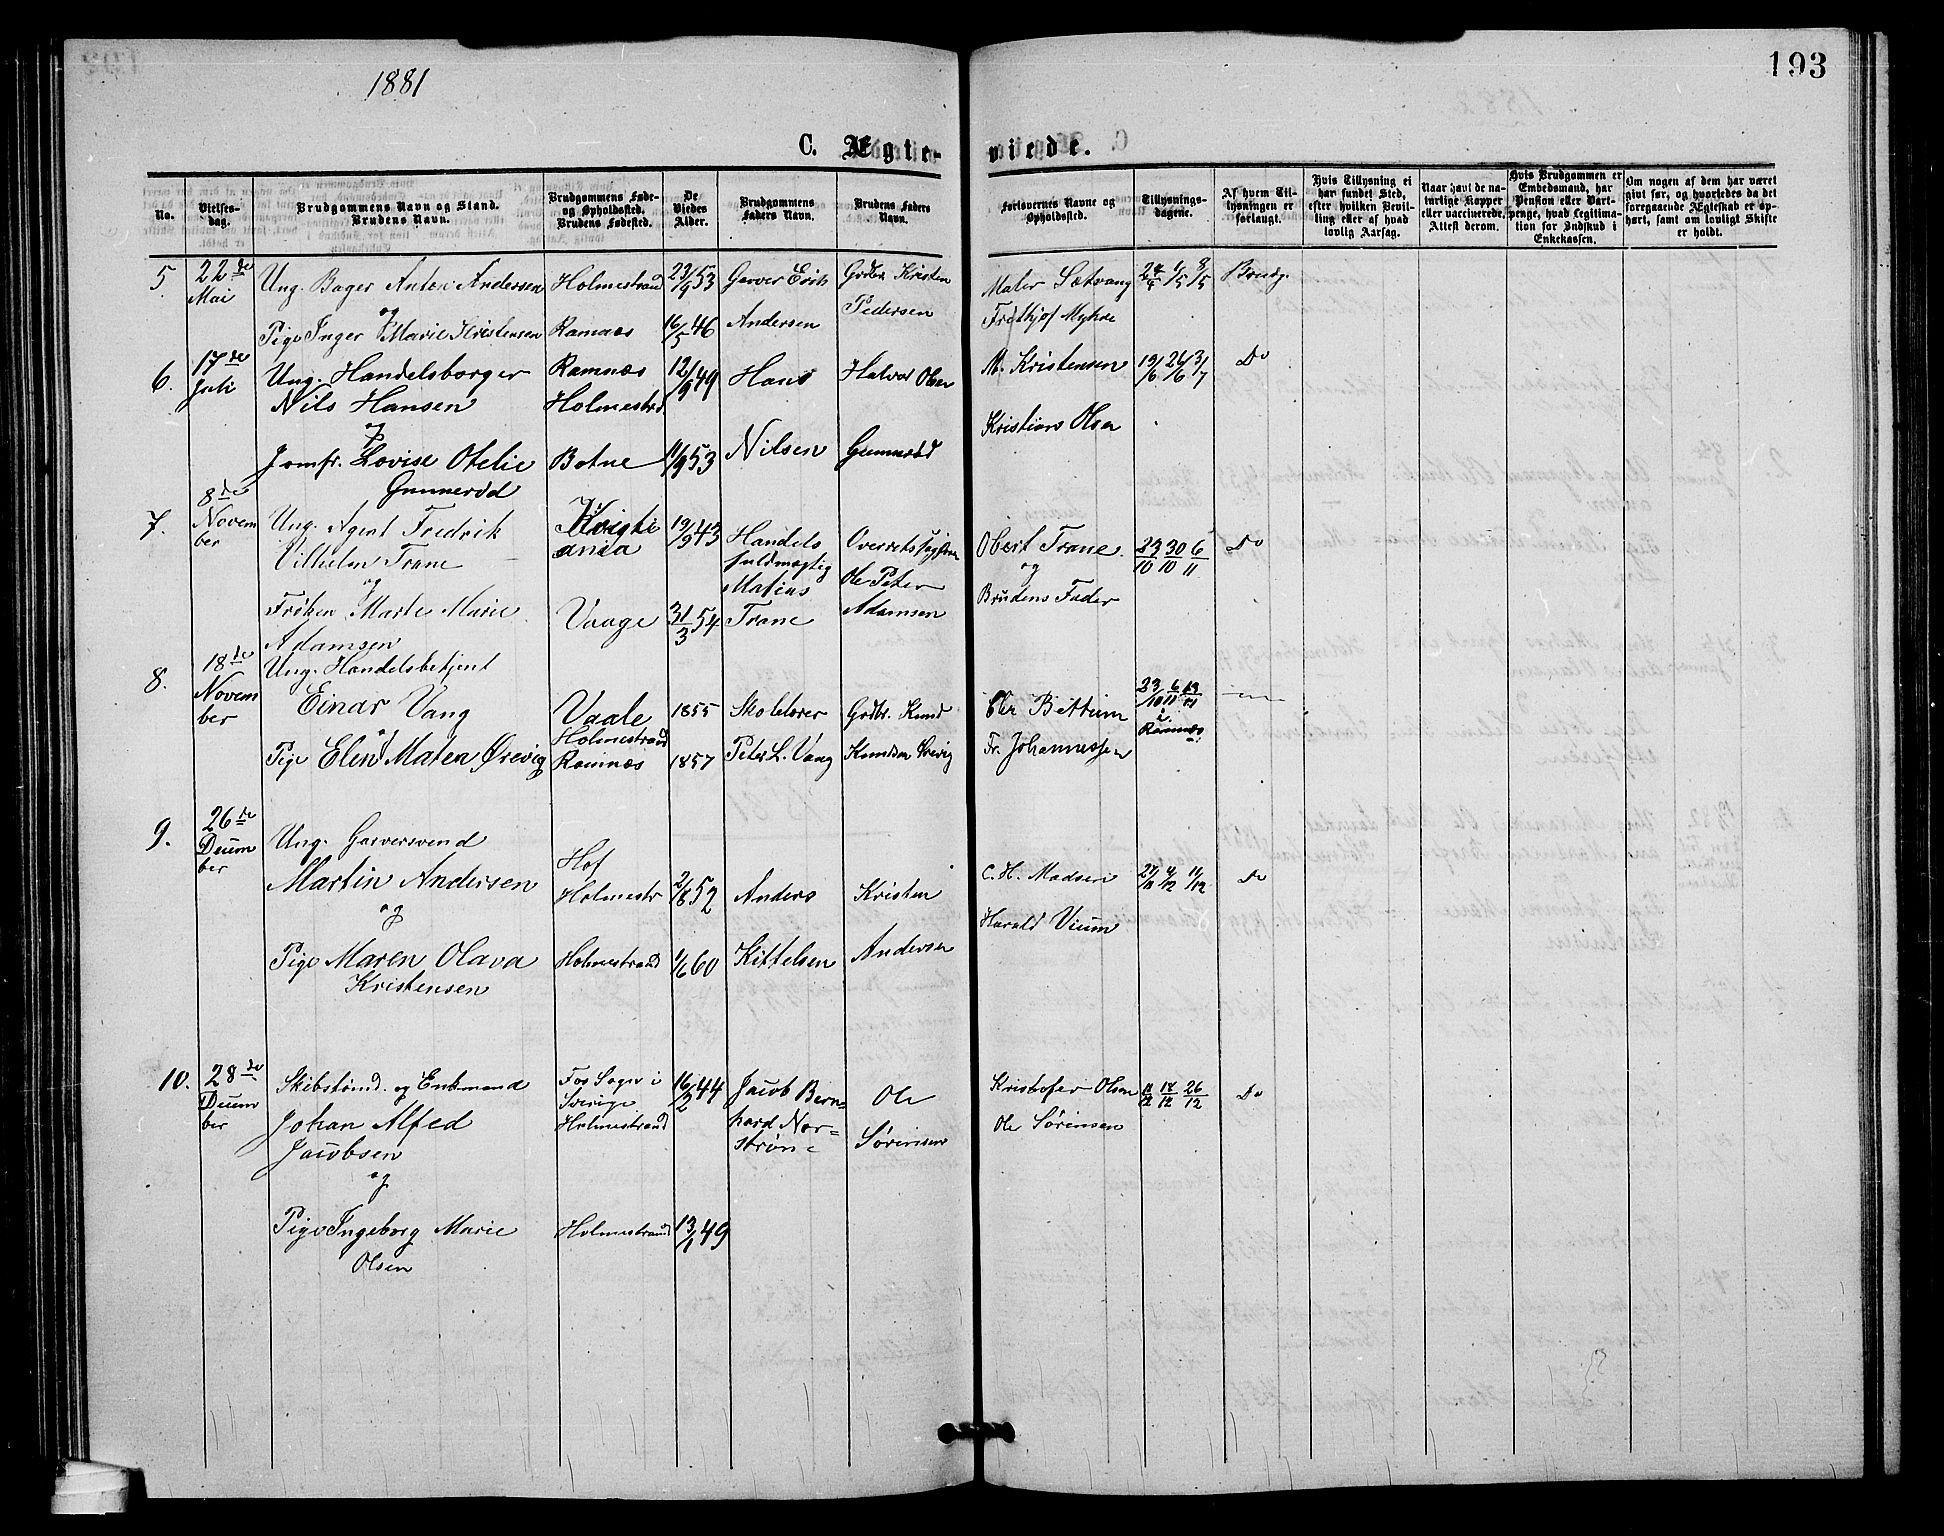 1881
193
C. Ægte-
viede.
No.
Vielses-
dag.
Brudgommens Navn og Stand.
Brudens Navn.
Brudgommens Føde-
og Opholdssted.
Brudens Fødested.
De
Viedes
Alder.
Brudgommens
Faders Navn.
Brudens Faders
Navn.
Forlovernes Navne og
Opholdssted.
Tillysnings-
dagene.
Af hvem Til-
lysningen er
forlangt.
Hvis Tillysning ei
har fundet Sted,
efter hvilken Bevil-
ling eller af hvad
lovlig Aarsag.
Naar havt de na-
turlige Kopper
eller vaccinerede,
Attest derom.
Hvis Brudgommen er
Embedsmand, har
Pension eller Vart-
penge, hvad Legitima-
tion for Indskud i
Enkekassen.
Om nogen af dem har været
gift før, og hvorledes da det
foregaaende Ægteskab er op-
hørt, samt om lovligt Skifte
er holdt.
5
22de
Mai
Ung. Bager Anton Andersen
og
Pige Inger Marie Kristensen
Holmestrand
Ramnes
23/9 53
16/5 46
Garver Erik
Andersen
Gdbr. Kristen
Pedersen
Maler Sætvang
Fridthjof Myhre
24/4 1/5 8/5
Brudg.
6.
17de
Juli
Ung. Handelsborger
Nils Hansen
og
Jomfr. Lovise Otelie
Gunnerød
Ramnæs
Holmestrd
Botne
12/9 49
11/9 53
Hans
Nilsen
Halvor Olsen
Gunnerød
M. Kristensen
Kristians Olsen
19/6 26/6 3/7
Do
7.
8de
Novem
ber
Ung. Agent Fredrik
Vilhelm Trane
og
Frøken Marte Marie
Adamsen
Kristi
ania
Vaage
19/9 43
31/3 54
Handels
fuldmægtig
Matias
Trane
Ole Peter
Adamsen
Obert Trane
og
Brudens Fader
23/10 30/10 6/11
Do
8.
18de
Novem
ber
Ung. Handelsbetjent
Einar Vang
og
Pige Elen Maten Ørevig
Vaale
Holmestrand
Ramnæs
1855
1857
Skolelærer
Peter L. Vang
Gdbr. Knud
Knudsen Ørevig
Chr Bettum
Fr. Johannessen
23/10 6/11 13/11
i
Ramnæs
9.
26de
Decem
ber
Ung. Garversvend
Martin Andersen
og
Pige Maren Olava
Kristensen
Hof
Holmestr
Holmestrand
2/8 52
1/6 60
Anders
Kittelsen
Kristen
Andersen
C. H. Madsen
Harald Vium
27/11 4/12 11/12
Do
10.
28de
Decem
ber
Skibstømd. og Enkemand
Johan Alfed
Jacobsen
og
Pige Ingeborg Marie
Olsen
Fos Sogn i
Sverige
Holmestrand
Holmestrand
16/2 44
13/1 49
Jacob Bern=
hard Nor=
strøm
Ole
Sørensen
Kristofer Olsen
Ole Sørensen
11/12 18/12 26/12
Do